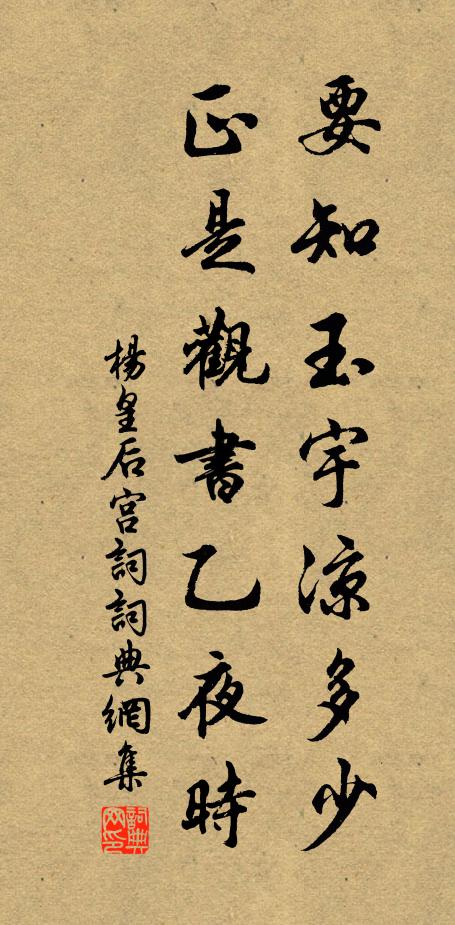 要知玉宇凉多少
正是觀書乙夜時
楊皇后宮詞詞典網集
詞典网印